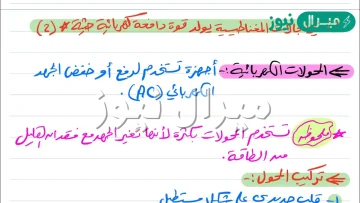 ميرال نيوز
المغناطيسية يولد قوة دافعة كهربائية حثية * (2)
المحولات الكهربائية :- أجهزة تستخدم لرفع أو خفض الجهد
الكهربائي (AC)
ميرال نيوز
* ملحوظة تستخدم المحولات بكثرة لأنها تغير الجهد مع فقدانه القليل
من الطاقة.
تركيب المحول :-
1- قلب حديدي على شكل مستطيل